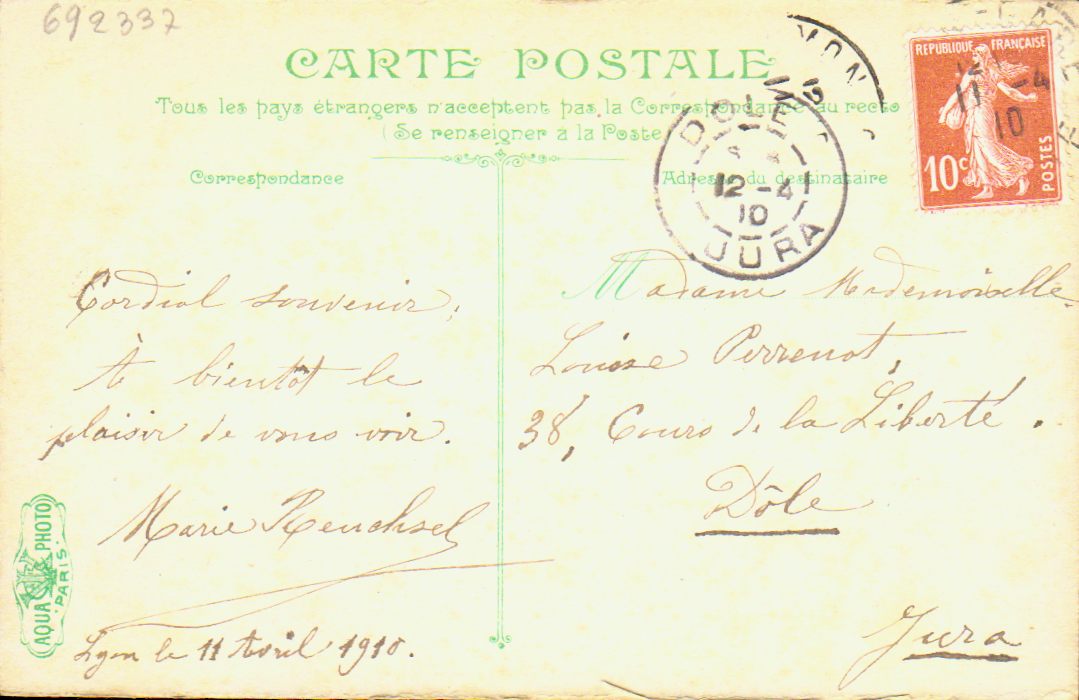 692337
CARTE POSTALE
Tous les pays étrangers n'acceptent pas la Correspondance au recto
(Se renseigner à la Poste
Correspondance
Adresse du destinataire
RÉPUBLIQUE FRANÇAISE
10c
POSTES
11 -4
10
DOLE
12 -4
10
JURA
Cordial souvenir,
À bientôt le
plaisir de vous voir.
Marie Reuchsel
Lyon le 11 Avril 1910.
Madame Mademoiselle
Louise Perrenot,
38, Cours de la Liberté.
Dôle
Jura
AQUA PHOTO
PARIS